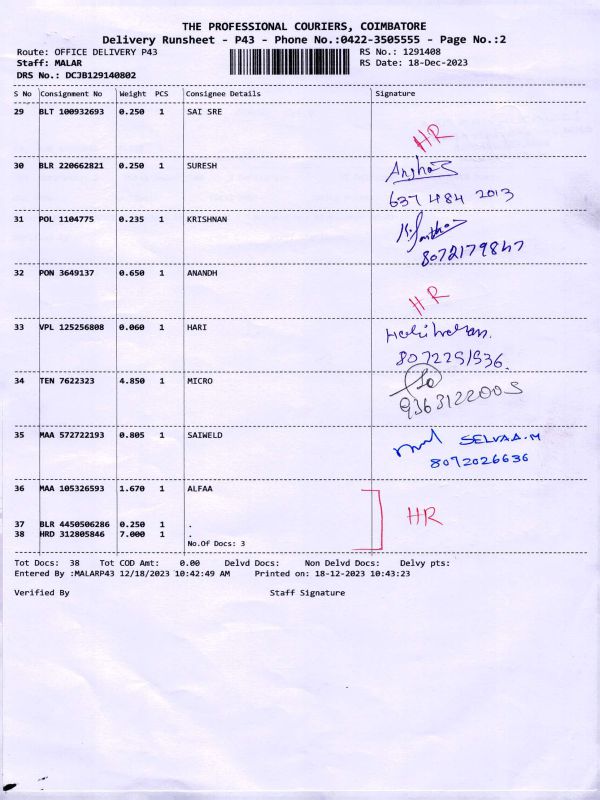 THE PROFESSIONAL COURIERS, COIMBATORE
Delivery Runsheet - P43 - Phone No.:0422-3505555 - Page No.:2
Route: OFFICE DELIVERY P43 RS No.: 1291408
Staff: MALAR RS Date: 18-Dec-2023
DRS No.: DCJB129140802
S No Consignment No Weight PCS Consignee Details Signature
29 BLT 100932693 0.250 1 SAI SRE
HR
30 BLR 220662821 0.250 1 SURESH
637 484 2013
31 POL 1104775 0.235 1 KRISHNAN
8072179847
32 PON 3649137 0.650 1 ANANDH
HR
33 VPL 125256808 0.060 1 HARI
34 TEN 7622323 4.850 1 MICRO
9363122005
35 MAA 572722193 0.805 1 SAIWELD
SELVAA.M
8072026636
36 MAA 105326593 1.670 1 ALFAA
HR
37 BLR 4450506286 0.250 1 .
38 HRD 312805846 7.000 1 .
No.Of Docs: 3
Tot Docs: 38 Tot COD Amt: 0.00 Delvd Docs: Non Delvd Docs: Delvy pts:
Entered By :MALARP43 12/18/2023 10:42:49 AM Printed on: 18-12-2023 10:43:23
Verified By Staff Signature